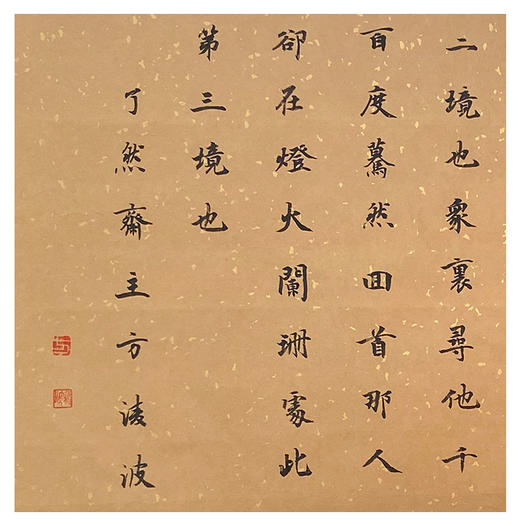 二境也眾裏尋他千
百度驀然回首那人
卻在燈火闌珊處此
第三境也
了然齋主方凌波